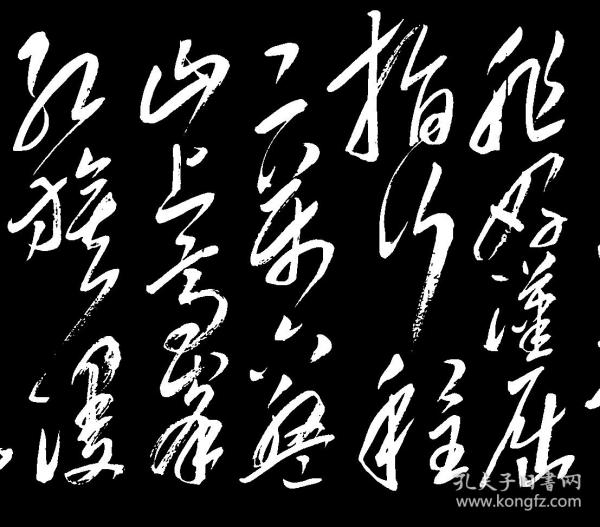 非好漢屈
指行程
二萬六盤
山上高峰
紅旗漫
孔夫子旧书网
www.kongfz.com